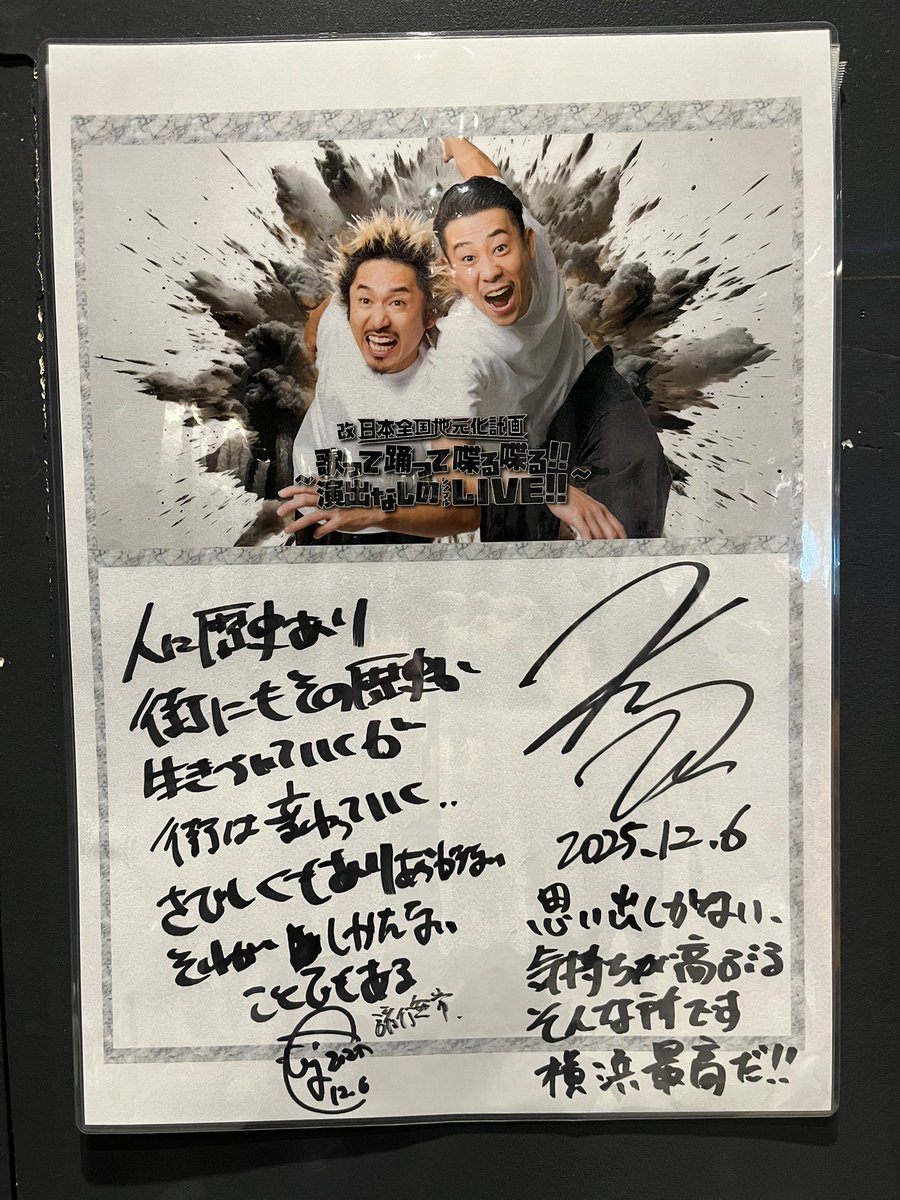 改 日本全国地元化計画
歌って踊って喋る喋る!!
～演出なしのシンプルLIVE!!～
人に歴史あり
街にもその歴史い
生きづいていくが
街は変わっていく..
さびしくもあり
それが しかたない
ことでもある
諸行無常
2025
12.6
2025.12.6
思い出しかない、
気持ちが高ぶる
そんな所です
横浜最高だ!!